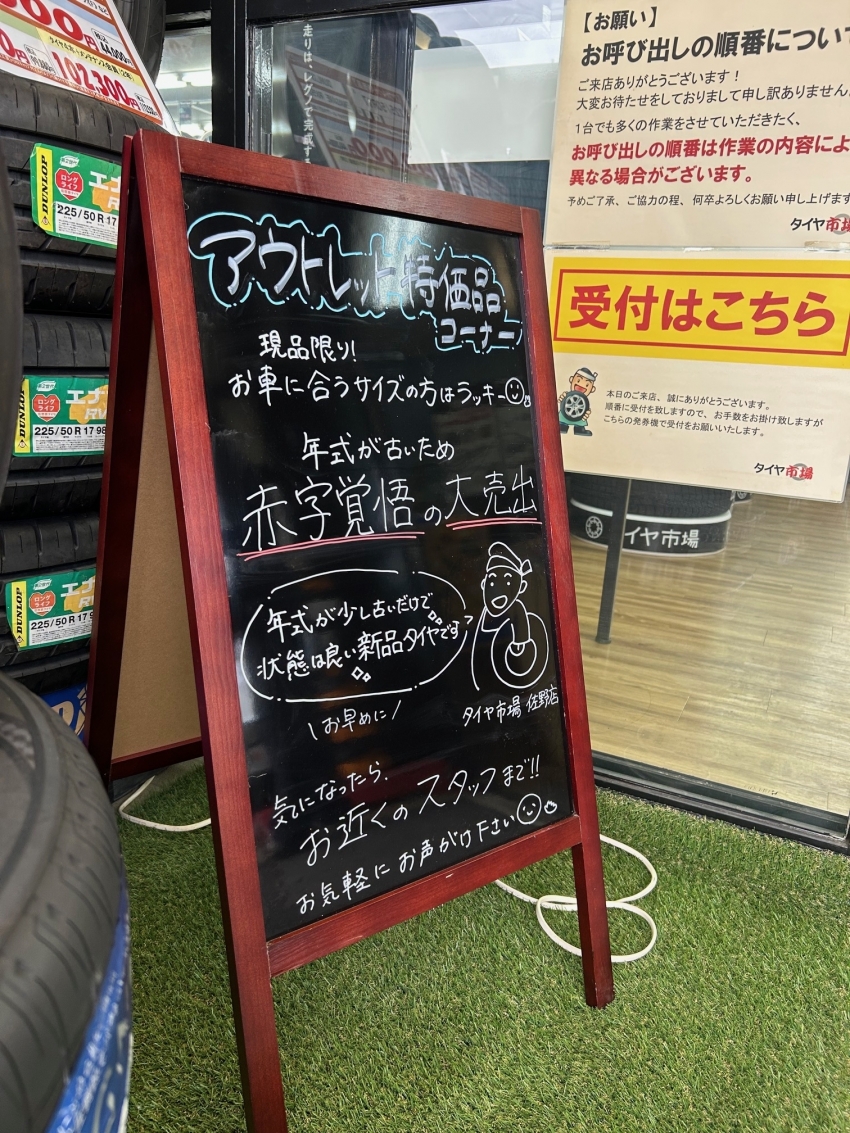 44,000円
102,300円
DUNLOP
ロングライフ
エナ
225/50 R 17
DUNLOP
ロングライフ
エナ
RV
225/50 R 17 98
DUNLOP
ロングライフ
エナ
RV
225/50 R 17 98
走りは、レグノで完成す
アウトレット特価品
コーナー
現品限り!
お車に合うサイズの方はラッキー
年式が古いため
赤字覚悟の大売出
年式が少し古いだけで
状態は良い新品タイヤです
\お早めに/
タイヤ市場 佐野店
気になったら、
お近くのスタッフまで!!
お気軽にお声がけ下さい
【お願い】
お呼び出しの順番につい
ご来店ありがとうございます!
大変お待たせをしておりまして申し訳ありません
1台でも多くの作業をさせていただきたく、
お呼び出しの順番は作業の内容によ
異なる場合がございます。
予めご了承、ご協力の程、何卒よろしくお願い申し上げます
タイヤ市場
受付はこちら
本日のご来店、誠にありがとうございます。
順番に受付を致しますので、お手数をお掛け致しますが
こちらの発券機で受付をお願いいたします。
タイヤ市場
イヤ市場